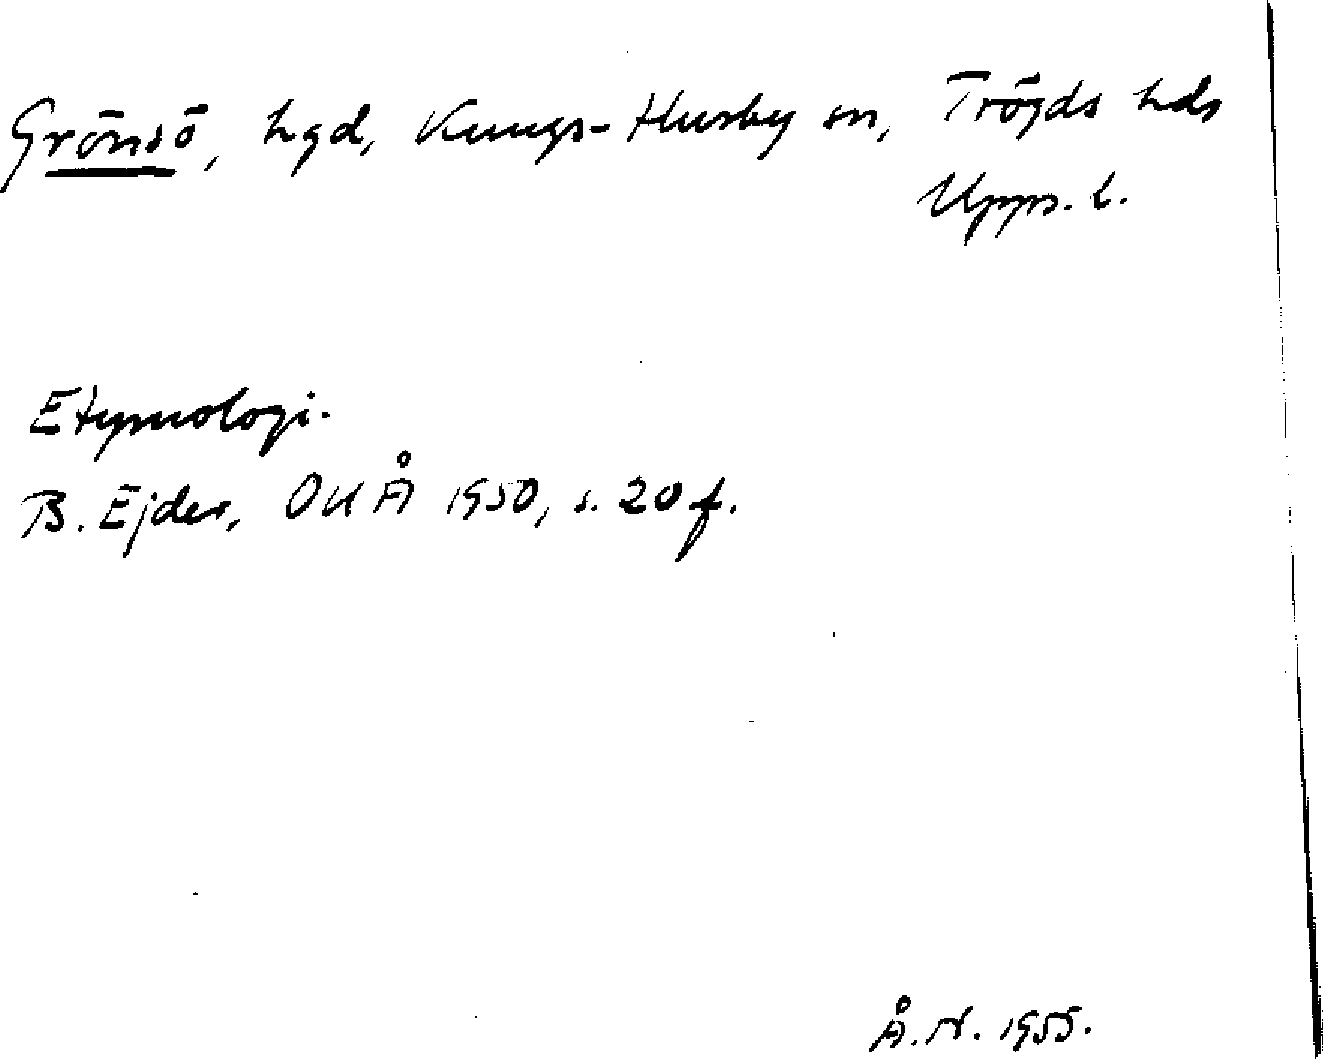 Grönsö, hgd, Kungs-Husby sn, Trögds hds
Upps. l.
Etymologi.
B. Ejder, OUÅ 1950, s. 20 f.
Å. N. 1955.